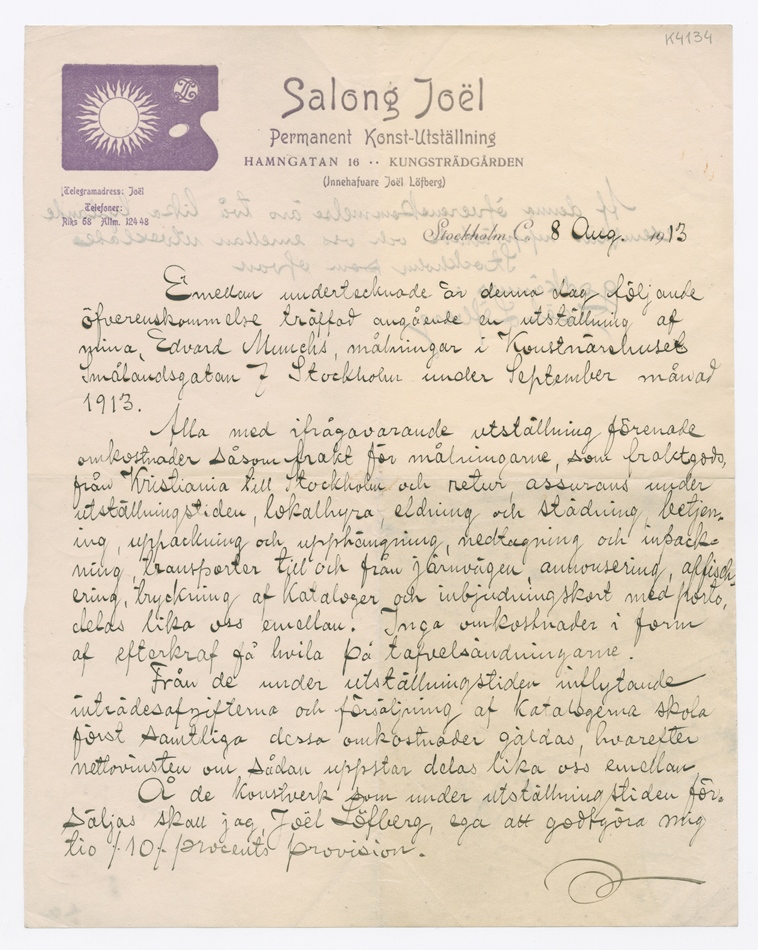 K4134
Salong Joël
Permanent Konst-Utställning
HAMNGATAN 16 ·· KUNGSTRÄDGÅRDEN
(Innehafvare Joël Löfberg)
Telegramadress: Joël
Telefoner:
Riks 68 Allm. 124 48
Stockholm C. 8 Aug. 1913
Emellan undertecknade är denna dag följande
öfverenskommelse träffad angående en utställning af
mina, Edvard Munchs, målningar i Konstnärshuset
Smålandsgatan 7 Stockholm under September månad
1913.
Alla med ifrågavarande utställning förenade
omkostnader såsom frakt för målningarne, som fraktgods,
från Kristiania till Stockholm och retur, assurans under
utställningstiden, lokalhyra, eldning och städning, betjen-
ing, uppackning och upphängning, nedtagning och inpack-
ning, transporter till och från järnvägen, annonsering, affisch-
ering, tryckning af Kataloger och inbjudningskort med porto,
delas lika oss emellan. Inga omkostnader i form
af efterkraf få hvila på tafvelsändningarne.
Från de under utställningstiden inflytande
inträdesafgifterna och försäljning af Katalogerna skola
först samtliga dessa omkostnader gäldas, hvarefter
nettovinsten om sådan uppstår delas lika oss emellan
Å de Konstverk som under utställningstiden för-
säljas skall jag, Joël Löfberg, ega att godtgöra mig
tio /-10-/ procents provision.